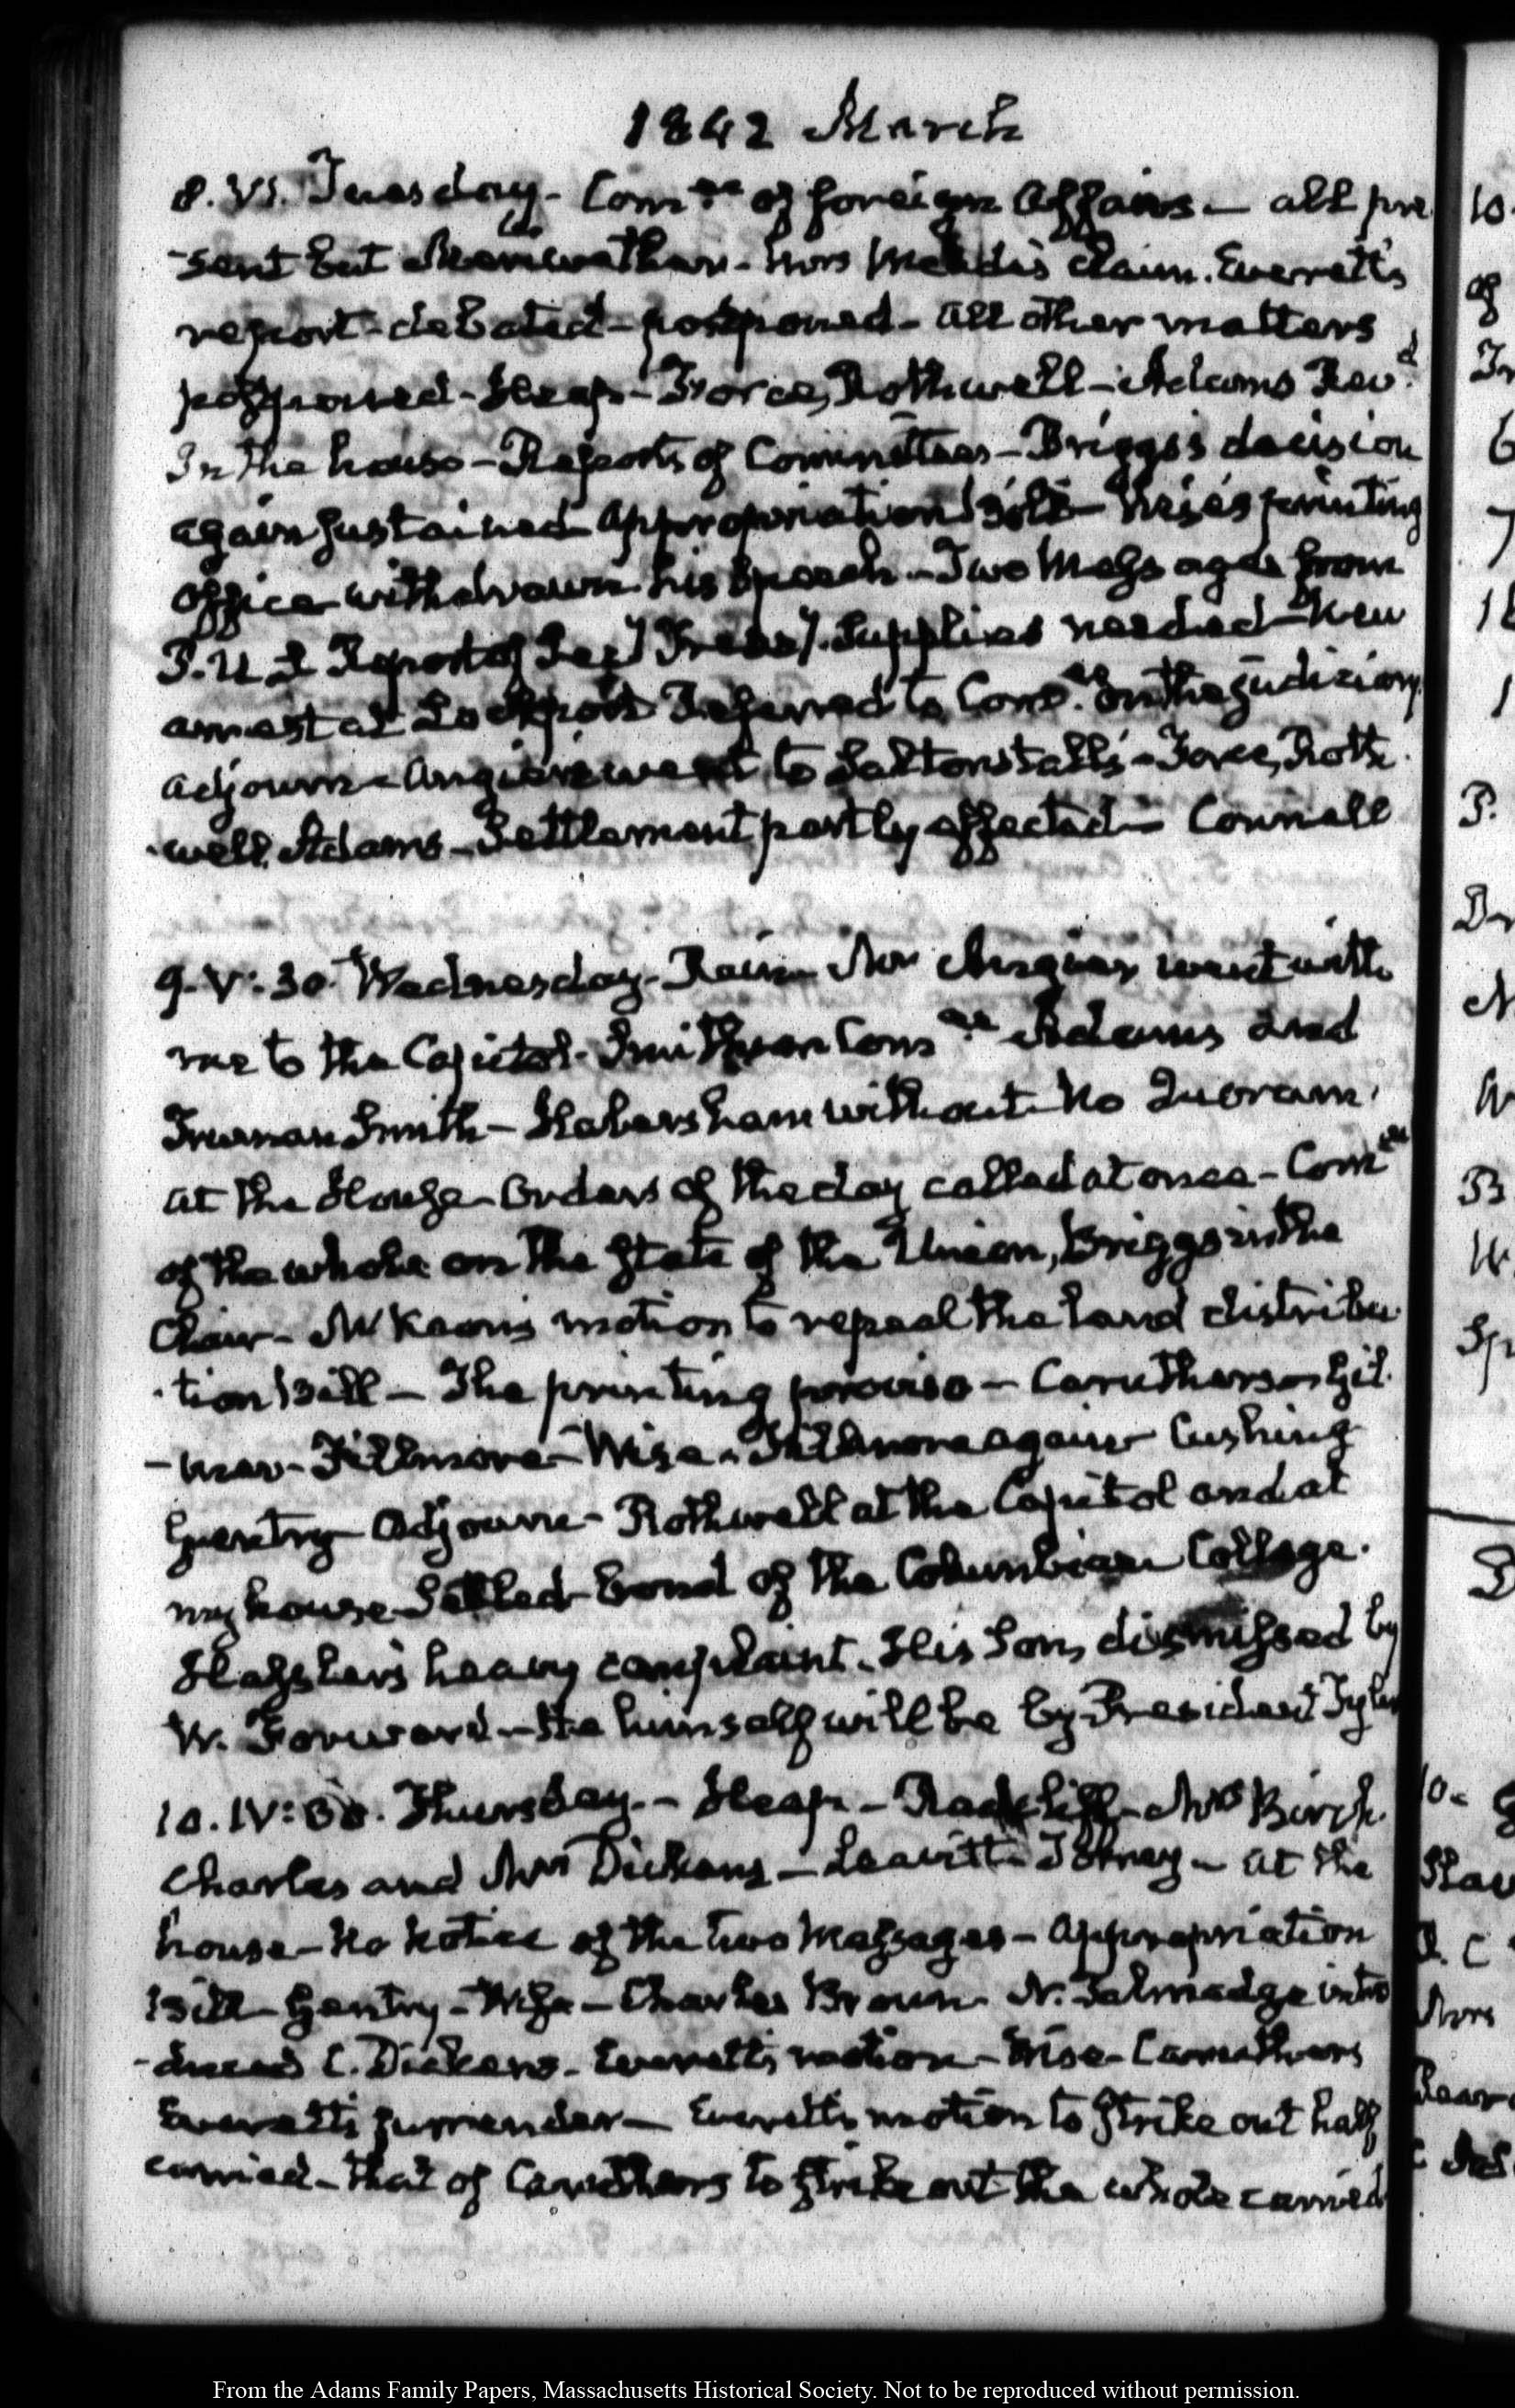 1842 March
8. VI. Tuesday - Comee. of foreign Affairs - all pre
-sent but Meriwether - Mrs Meade's claim. Everett's
report - debated - postponed - all other matters
postponed - Heap - Force, Rothwell - Adams Revd.
In the house - Reports of Committees - Briggs's decision
again sustained Appropriation Bill - Wise's printing
office withdrawn his speech - Two Messages from
P. U S Report of Secy Treasy. Supplies needed - New
arrest at Lockport Referred to Comee. on the judiciary
adjourn - Angier went to Saltonstall's - Force, Roth
-well, Adams - Settlement partly effected - Connell
9. V:30. Wednesday - Rain Mr Angier went with
me to the Capitol. Smithson Comee. Adams and
Truman Smith - Habersham without No Quorum.
at the House - Orders of the day called at once - Comee
of the whole on the State of the Union, Briggs in the
Chair - McKeon's motion to repeal the Land distribu
-tion Bill - The printing proviso - Caruthers - Gil
-mer - Fillmore - Wise - Fillmore again Cushing
Gentry Adjourn - Rothwell at the Capitol and at
my house Settled bond of the Columbian College.
Hassler's heavy complaint. His Son, dismissed by
W. Forward - He himself will be by President Tyler
10. IV:30. Thursday - Heap - Mrs Birch
Charles and Mrs Dickens - Leavitt - at the
house - No notice of the two Messages - Appropriation
Bill - Gentry - Wise - Charles Brown N. Talmadge intro
-duced C. Dickens - Everett's motion - Wise - Caruthers
Everett's surrender - Everett's motion to strike out half
carried - that of Caruthers to strike out the whole carried
From the Adams Family Papers, Massachusetts Historical Society. Not to be reproduced without permission.